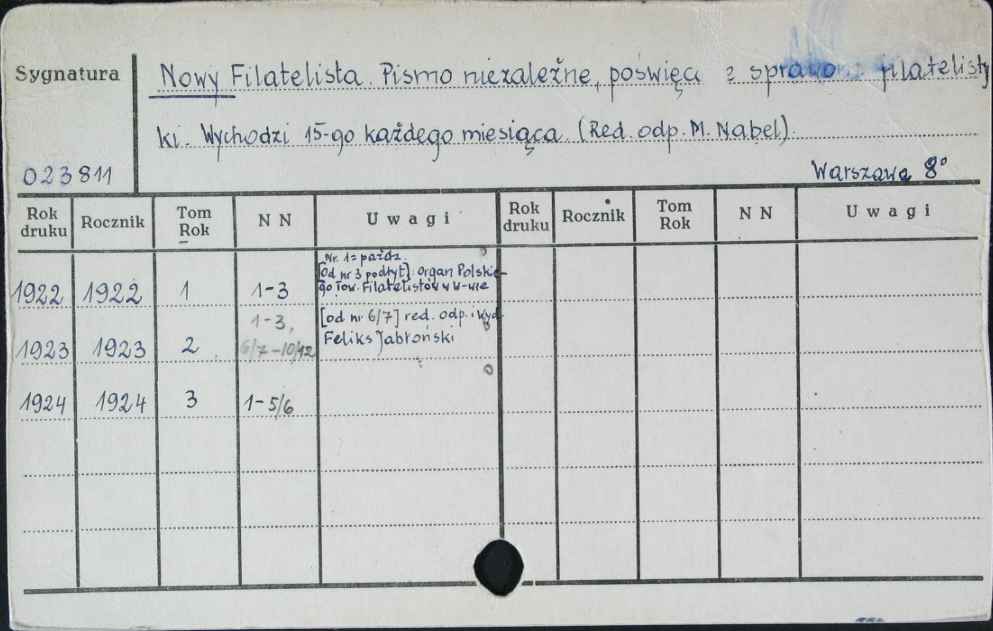 Sygnatura
Nowy Filatelista. Pismo niezależne, poświęc z sprawo filatelisty
ki. Wychodzi 15-go każdego miesiąca. (Red. odp. M. Nabel).
023811
Warszawa 8°
Rok druku Rocznik Tom Rok NN Uwagi Rok druku Rocznik Tom Rok NN Uwagi
Nr. 1 = paźdz.
[Od nr 3 podtyt]: Organ Polskie-
1922 1922 1 1-3 go Tow. Filatelistów w W-wie
1-3, [od nr 6/7] red. odp. i wyd.
1923 1923 2 6/7-10/12 Feliks Jabłoński
1924 1924 3 1-5/6